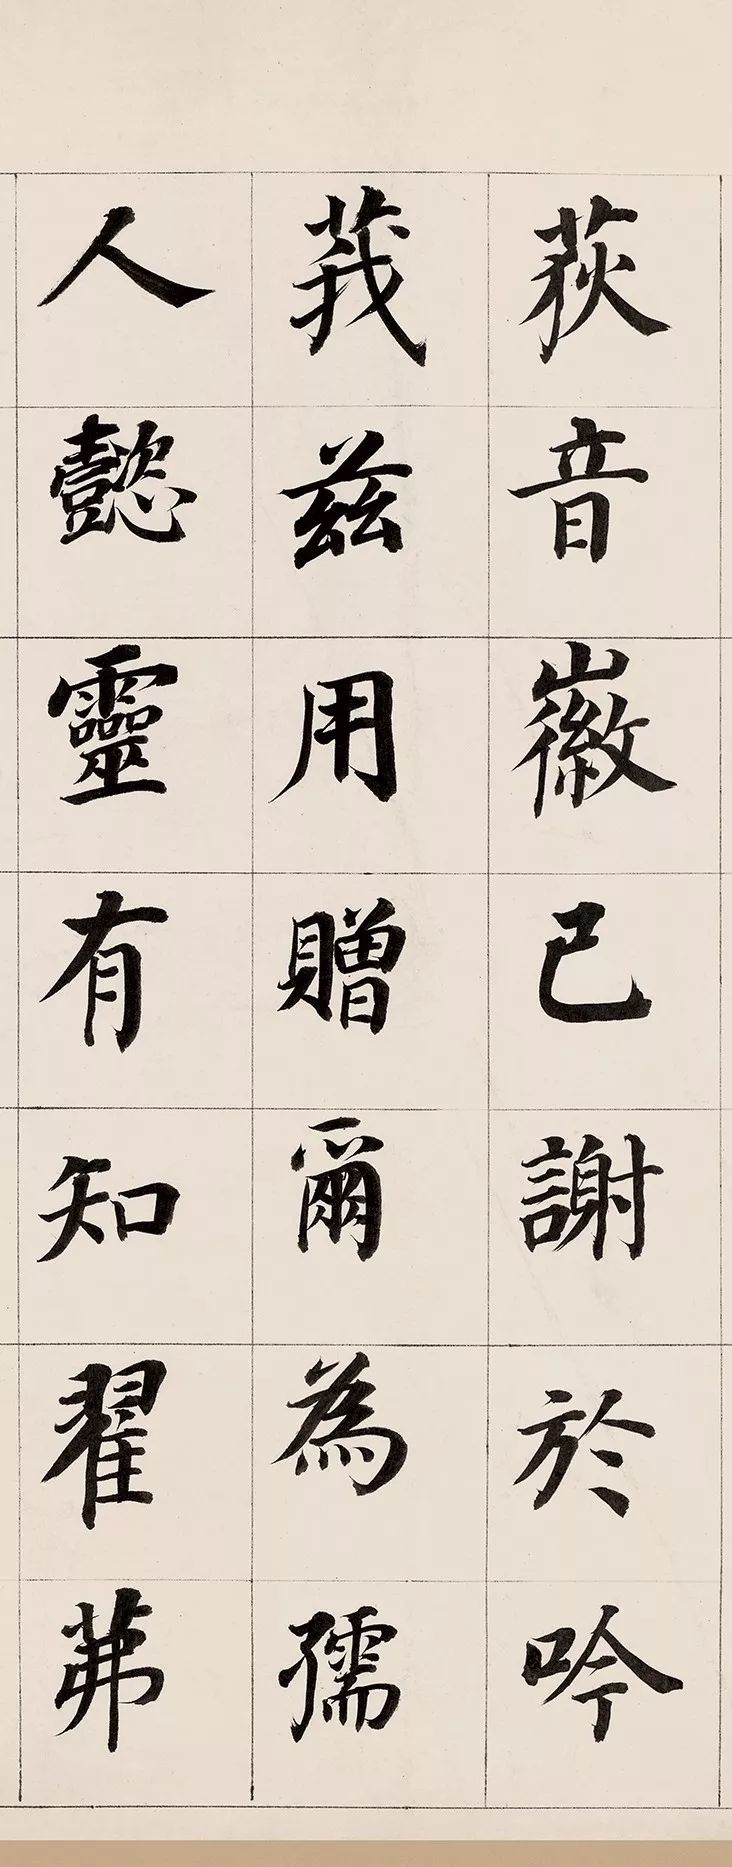 荻音徽已謝於吟
莪茲用贈爾為孺
人懿靈有知翟茀